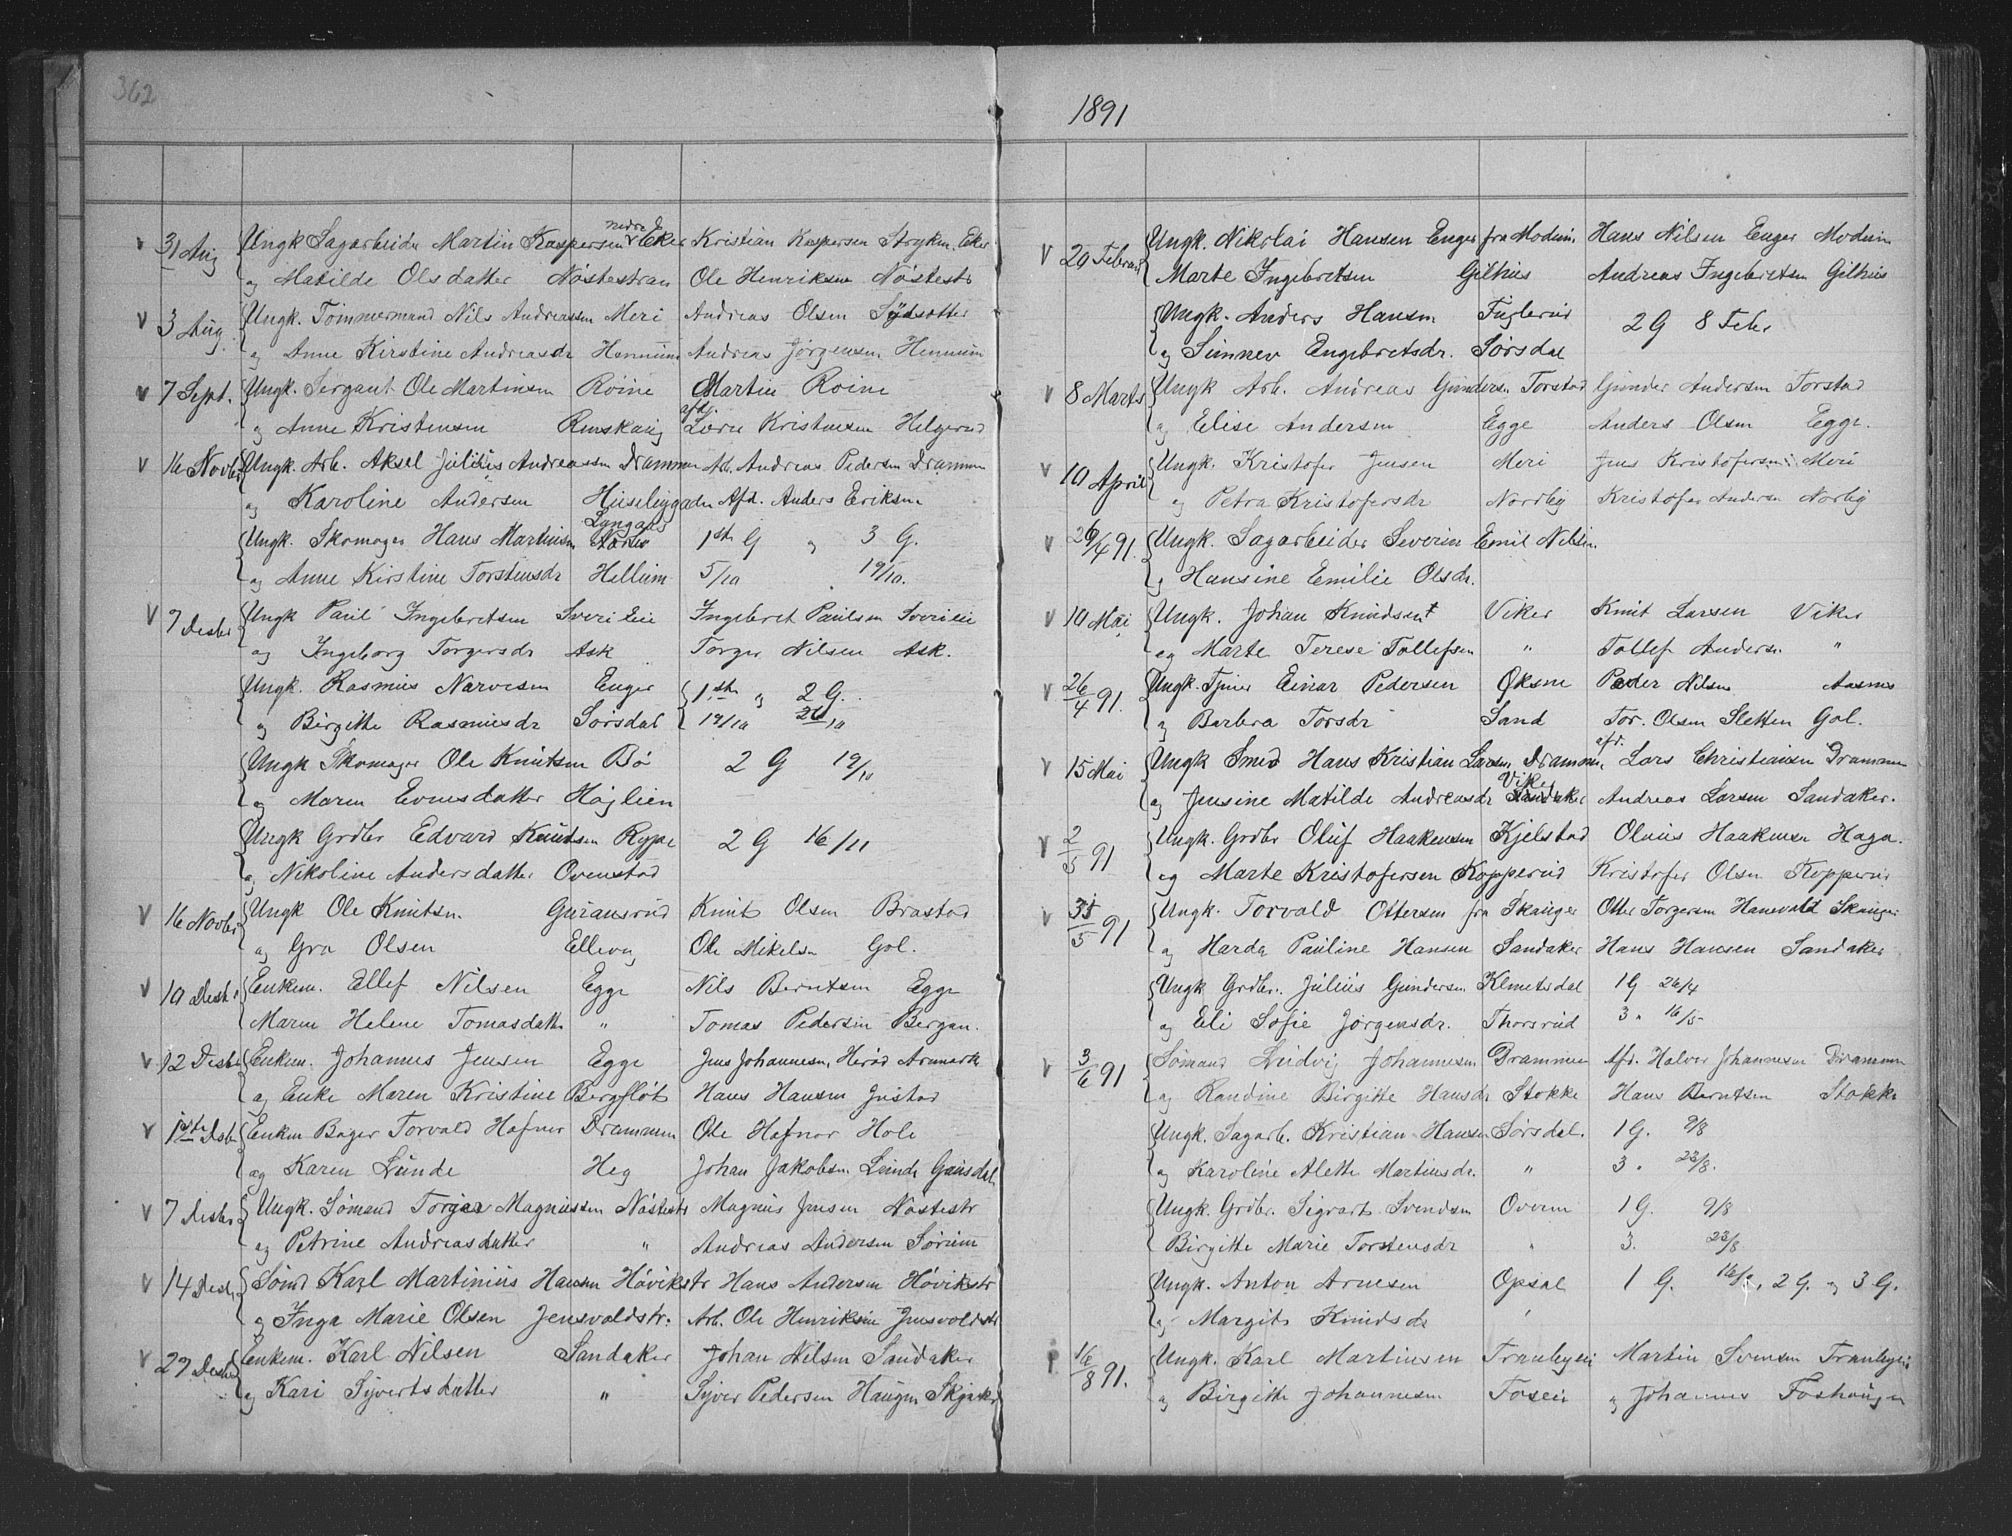 362
nedre
v 31 Aug Ungk Sagarbeider Martin Kaspersen v Eker Kristian Kaspersen Stryken, Eker
og Matilde Olsdatter Nöstestran Ole Henriksen Nöstestr
v 3 Aug Ungk. Tömmermand Nils Andreassen Meri Andreas Olsen Sydsatter
og Anne Kirstine Andreasdr Hennum Andreas Jørgensen Hennum
v 7 Sept. Ungk. Sergant Ole Martinsen Röine Martin Roine
afd.
og Anne Kristensen Renskaug Lars Kristensen Helgerud
v 16 Novbr Ungk. Arb. Aksel Julius Andreassen Drammen Arb. Andreas Pedersen Drammen
og Karoline Andersen Husebyggaden Afd. Anders Eriksen
Lyngaas
Ungk. Skomager Hans Martinsen 1ste G og 3 G.
og Anne Kirstine Torstensdr Hellum 5/10 19/10.
v 7 Desbr Ungk Paul Ingebretsen Sverileie Ingebret Paulsen Sverileie
og Ingeborg Torgersdr Ask Torger Nilsen Ask.
Ungk. Rasmus Narvesen Enger 1.ste og 2 G.
og Birgitte Rasmusdr Sörsdal 19/10 26/10
Ungk Skomager Ole Knutsen Bö 2 G 19/10
og Maren Evensdatter Höglien
Ungk Grdbr Edvard Knudsen Rype 2 G 16/11
og Nikoline Andersdatter Ovenstad
v 16 Novbr Ungk Ole Knutsen Guransrud Knut Olsen Brastad
og Gro Olsen Ellevog Ole Mikelsen Gol.
v 10 Desbr Enkem. Ellef Nilsen Egge Nils Berntsen Egge
Maren Helene Tomasdatter " Tomas Pedersen Bergan.
v 12 Desbr Enkem. Johannes Jensen Egge Jens Johannesen, Heröd Aremark
og Enke Maren Kristine Bergflöt Hans Hansen Justad
v 1ste Desbr Enkem Bager Torvald Hafnor Drammen Ole Hafnor Hole
og Karen Lunde Heg Johan Jakobsen Lunde Gausdal
v 7 Desbr Ungk. Sömand Torger Magnussen Nöstestr Magnus Jensen Nöstestr
og Petrine Andreasdatter " Andreas Andersen Sörum
v 14 Desbr Sömd Karl Martinius Hansen Hövikstr Hans Andersen Hövikstr
og Inga Marie Olsen Jensvoldstr. Arb. Ole Henriksen Jensvoldstr
v 27 Desbr Enkem. Karl Nilsen Sandaker Johan Nilsen Sandaker
og Kari Syvertsdatter " Syver Pedersen Haugen Skjaker
1891
v 20 Februar Ungk. Nikolai Hansen Enger fra Modum, Hans Nilsen Enger Modum
Marte Ingebretsen Gilhus Andreas Ingebretsen Gilhus
Ungk. Anders Hansen Fuglerud 2 G 8 Febr
og Sunnev Engebretsdr. Sörsdal
v 8 Marts Ungk Arb. Andreas Gundersen Torstad Gunder Andersen Torstad
og Elise Andersen Egge Anders Olsen Egge.
v 10 April Ungk. Kristofer Jensen Meri Jens Kristofersen Meri
og Petra Kristofersdr Nordby Kristofer Andersen Norby
v 26/4 91. Ungk. Sagarbeider Severin Emil Nilsen.
og Hansine Emilie Olsdr.
v 10 Mai Ungk. Johan Knudsen Viker Knut Larsen Viker
og Marte Terese Tollefsen " Tollef Anders. "
v 26/4 91. Ungk. Tjener Einar Pedersen Oksne Peder Nilsen Aasnes
og Barbra Torsdr Sand Tor. Olsen Sletten Gol.
afd.
v 15 Mai Ungk Smed Hans Kristian Larsen, Drammen, Lars Christiansen Drammen
Viker
og Jensine Matilde Andreasdr Sandaker Andreas Larsen Sandaker.
v 2/5 91 Ungk. Grdbr Oluf Haakensen Kjelstad Olaus Haakensen Haga.
og Marte Kristofersen Kopperud Kristofer Olsen Kopperud
v 35/5 91 Ungk. Torvald Ottersen fra Skauger Otter Torgersen Hanevold Skauger
og Harda Pauline Hansen Sandaker Hans Hansen Sandaker
Ungk Grdbr. Julius Gundersen Klemetsdal 1 G 26/4
og Eli Sofie Jørgensdr. Thorsrud 3 " 16/5
v 3/6 91 Sömand Ludvig Johannesen Drammen Afd. Halvor Johannesen Drammen
og Randine Birgitte Hansdr Stokke Hans Berntsen Stokke
Ungk. Sagarb. Kristian Hansen Sörsdal. 1 G. 9/8
og Karoline Alette Martinsdr. " 3 " 23/8.
Ungk. Grdbr. Sigvart Svendsen Overn 1 G. 9/8
Birgitte Marie Torstensdr " 3. 23/8
Ungk. Anton Arnesen Opsal 1 G. 16/8, 2 G. og 3 G.
og Margit Knudsdr "
16/8 91. Ungk. Karl Martinsen Tranbyeie Martin Svensen Tranbyeie
og Birgitte Johannesen Foseie og Johannes Foshaugen